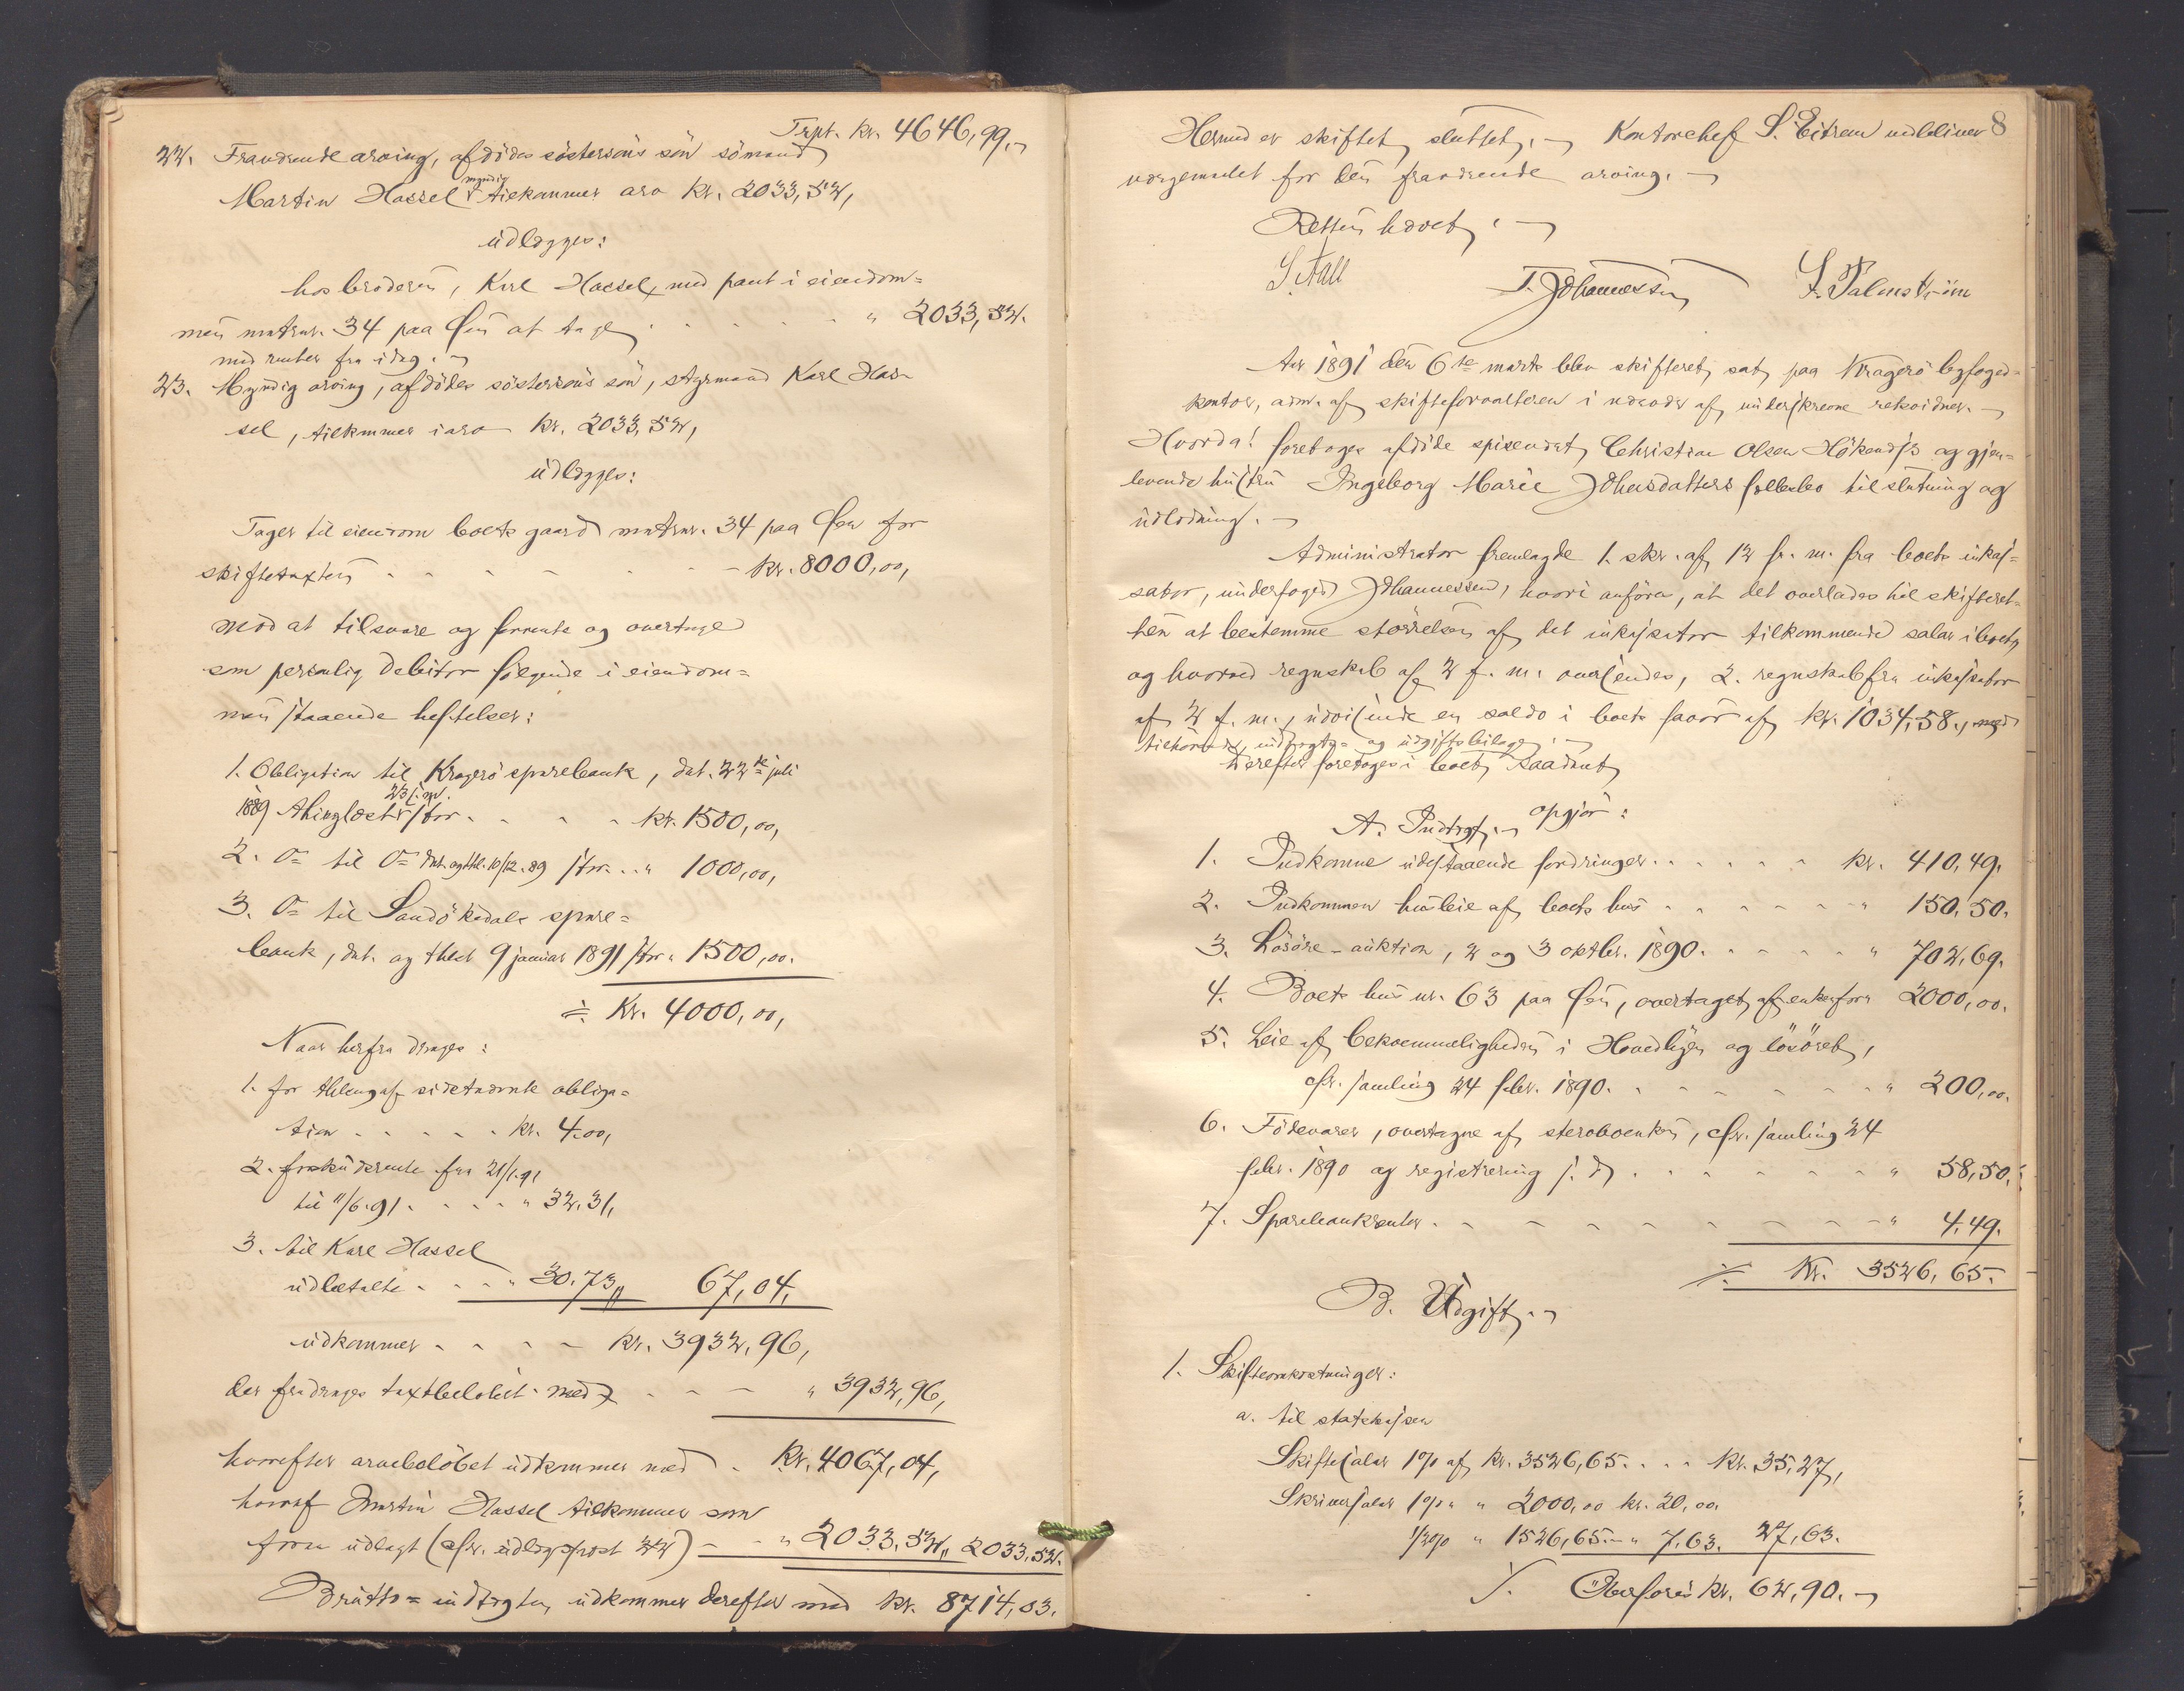 Trpt. kr. 4646,99.
22. Fraværende arving, afdödes søstersöns sön sömand
myndig
Martin Hassel tilkommer arv kr. 2033,52,
udlægges:
hos broderen, Karl Hassel, med pant i eiendom=
men matrnr. 34 paa Øen at tage . . . . . " 2033,52.
med renter fra idag.
23. Myndig arving, afdödes söstersöns sön, styrmand Karl Has-
sel, tilkommer i arv kr. 2033,52,
udlægges:
Tager til eiendom boets gaard matrnr. 34 paa Øen for
skiftetaxten - - - - - kr. 8000,00,
mod at tilsvare og forrente og overtage
som personlig debitor fölgende i eiendom=
men staaende heftelser:
1. Obligation til Kragerö sparebank, dat. 22de juli
23 s. m.
1889 thinglæst stor - - - - kr. 1500,00,
2. Do til Do dat. og thl. 10/12.89 stor . . " 1000,00,
3. Do til Sandökedals spare=
bank, dat. og thlst 9 januar 1891 stor " 1500,00.
Kr. 4000,00,
Naar herfra drages:
1. for thlæsng af sidstnævnte obliga=
tion - - - - - kr. 4.00,
2. forskudsrente fra 21/1.91
til 11/6.91 . - - - " 32.31,
3. til Karl Hassel
udbetalte - - - " 30.73,, 67,04,
udkommer - - - - kr. 3932,96,
der fradrages taxtbelöbet med - - - " 3932,96,
hvorefter arvebelöbet udkommer med - Kr. 4067,04,
hvoraf Martin Hassel tilkommer som
foran udlagt (cfr. udlægspost 22) - - " 2033.52,, 2033.52.
Brutto= indtægten udkommer derefter med kr. 8714,03.
8
Hermed er skiftet sluttet. Kontorchef S. Eitrem meddeliner
værgemaalet for den fraværende arving.
Retten hævet.
S. Fall T. Johannessen S. Palmström
Aar 1891 den 6te marts blev skifteret sat paa Kragerö byfoged=
kontor, adm. af skifteforvalteren i nærvær af underskrevne retsvidner.
Hvorda! foretoges afdöde Christian Olsen og gjen=
levende hustru Ingeborg Marie Johnsdatters fællesbo til slutning og
udlodning.
Administrator fremlagde 1. skr. af 12 f. m. fra boets inkas=
sator, underfoged Johannessen, hvori anføres, at det overlades til skifteret=
ten at bestemme störrelsen af det inkassator tilkommende salær i boet
og hvorved regnskab af 2 f. m. oversendes, 2. regnskab fra inkassator
af 2 f. m., udvisende en saldo i boets favör af kr. 1034,58., med
tilhörende indtægts- og udgiftsbilage.
Derefter foretoges i boet saadant
opgjör:
A. Indtægt.
1. Indkomne udestaaende fordringer . . . . . . kr. 410,49.
2. Indkommen husleie af boets hus - - - - - " 150,50.
3. Lösöre-auktion, 2 og 3 oktbr. 1890. - - - - " 702,69.
4. Boets hus nr. 63 paa Øen, overtaget af enken for " 2000,00.
5. Leie af bekvemmeligheden i og lösöret,
cfr. samling 24 febr. 1890. - - - - - - " 200,00.
6. Födevarer, overtagne af stervboenken, cfr. samling 24
febr. 1890 og registrering s. d. . - - - - - " 58,50.
7. Sparebankrenter . - - - - - - - " 4,49.
Kr. 3526,65.
B. Udgift.
1. Skifteomkostninger:
a. til statskassen
Skiftesalær 1% af kr. 3526,65. . . . kr. 35,27,
Skriversalær 1% " " 2000,00 kr. 20,00
1/2% " 1526,65.- " 7.63. 27,63.
Overföres kr. 62,90.